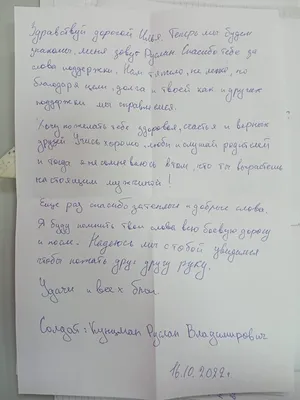 Здравствуй дорогой Илья. Теперь мы будем
знакомы, меня зовут Руслан. Спасибо тебе за
слова поддержки. Нам тяжело, не легко, но
благодаря чести, долга и твоей как и других
поддержки мы справимся.
Хочу пожелать тебе здоровья, счастья и верных
друзей. Учись хорошо, люби и слушай родителей
и тогда я не сомневаюсь в том, что ты вырастешь
настоящим мужчиной!
Еще раз спасибо за теплые и добрые слова.
Я буду помнить твои слова всю боевую дорогу
и после. Надеюсь мы с тобой увидимся
чтобы пожать друг другу руку.
Удачи и всех благ.
Солдат: Руслан Владимирович
16.10.2022г.